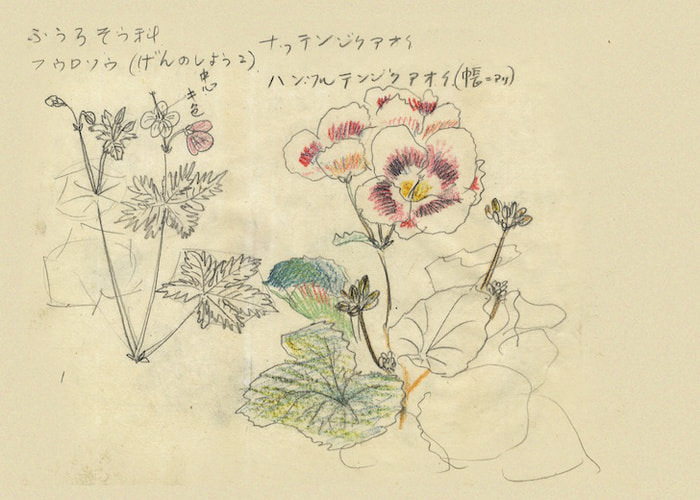 ふうろそう科
フウロソウ(げんのしょうこ)
中心
キ色
ナツテンジクアオイ
ハンカルテンジクアオイ(幅=アリ)